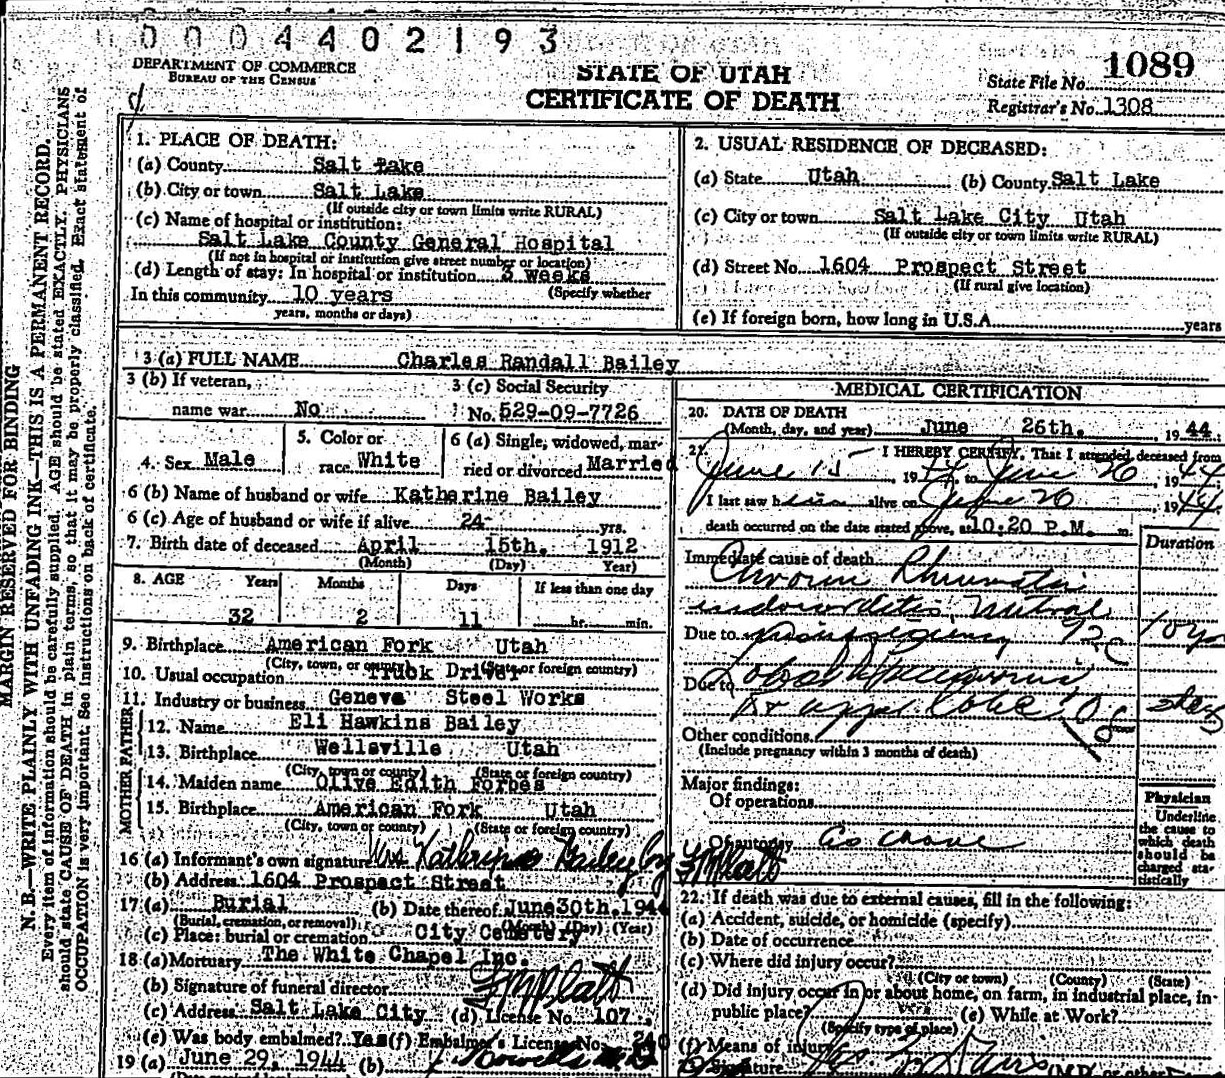 0004402193
DEPARTMENT OF COMMERCE
BUREAU OF THE CENSUS
STATE OF UTAH
CERTIFICATE OF DEATH
State File No. 1089
Registrar's No. 1308
MARGIN RESERVED FOR BINDING
N. B.—WRITE PLAINLY WITH UNFADING INK—THIS IS A PERMANENT RECORD.
Every item of information should be carefully supplied. AGE should be stated EXACTLY. PHYSICIANS
should state CAUSE OF DEATH in plain terms, so that it may be properly classified. Exact statement of
OCCUPATION is very important. See instructions on back of certificate.
1. PLACE OF DEATH:
(a) County Salt Lake
(b) City or town Salt Lake
(If outside city or town limits write RURAL)
(c) Name of hospital or institution:
Salt Lake County General Hospital
(If not in hospital or institution give street number or location)
(d) Length of stay: In hospital or institution 3 weeks
In this community 10 years (Specify whether
years, months or days)
2. USUAL RESIDENCE OF DECEASED:
(a) State Utah (b) County Salt Lake
(c) City or town Salt Lake City Utah
(If outside city or town limits write RURAL)
(d) Street No. 1604 Prospect Street
(If rural give location)
(e) If foreign born, how long in U.S.A. years
3 (a) FULL NAME Charles Randall Bailey
3 (b) If veteran, 3 (c) Social Security
name war No No. 529-09-7726
4. Sex Male 5. Color or race White 6 (a) Single, widowed, married or divorced Married
6 (b) Name of husband or wife Katherine Bailey
6 (c) Age of husband or wife if alive 24 yrs.
7. Birth date of deceased April 15th. 1912
(Month) (Day) Year)
8. AGE Years Months Days If less than one day
32 2 11 hr. min.
9. Birthplace American Fork Utah
(City, town, or county) (State or foreign country)
10. Usual occupation Truck Driver
11. Industry or business Geneva Steel Works
FATHER
12. Name Eli Hawkins Bailey
13. Birthplace Wellsville Utah
(City, town or county) (State or foreign country)
MOTHER
14. Maiden name Olive Edith Forbes
15. Birthplace American Fork Utah
(City, town or county) (State or foreign country)
16 (a) Informant's own signature Mrs Kathrine Bailey by FM Platt
(b) Address 1604 Prospect Street
17 (a) Burial (b) Date thereof June 30th. 1944
(Burial, cremation, or removal) (Month) (Day) (Year)
(c) Place: burial or cremation City Cemetery
18 (a) Mortuary The White Chapel Inc.
(b) Signature of funeral director FM Platt
(c) Address Salt Lake City (d) License No. 107
(e) Was body embalmed? Yes (f) Embalmer's License No. 240
19 (a) June 29, 1944 (b)
MEDICAL CERTIFICATION
20. DATE OF DEATH
(Month, day, and year) June 26th. 1944
21. I HEREBY CERTIFY, That I attended deceased from
June 15 1944, to June 26, 1944
I last saw him alive on June 26, 1944
death occurred on the date stated above, at 10:20 P.M. m.
Duration
Immediate cause of death
Chronic Rheumatic
endocarditis, Mitral 10 yrs
Due to insufficiency 92c
Due to Lobar Pneumonia
Rt upper lobe 108 days
Other conditions
(Include pregnancy within 3 months of death)
Major findings:
Of operations
Of autopsy As above
Physician
Underline
the cause to
which death
should be
charged sta-
tistically
22. If death was due to external causes, fill in the following:
(a) Accident, suicide, or homicide (specify)
(b) Date of occurrence
(c) Where did injury occur?
(City or town) (County) (State)
(d) Did injury occur in or about home, on farm, in industrial place, in
public place? (e) While at Work?
(Specify type of place)
(f) Means of injury
Signature (M.D. or other